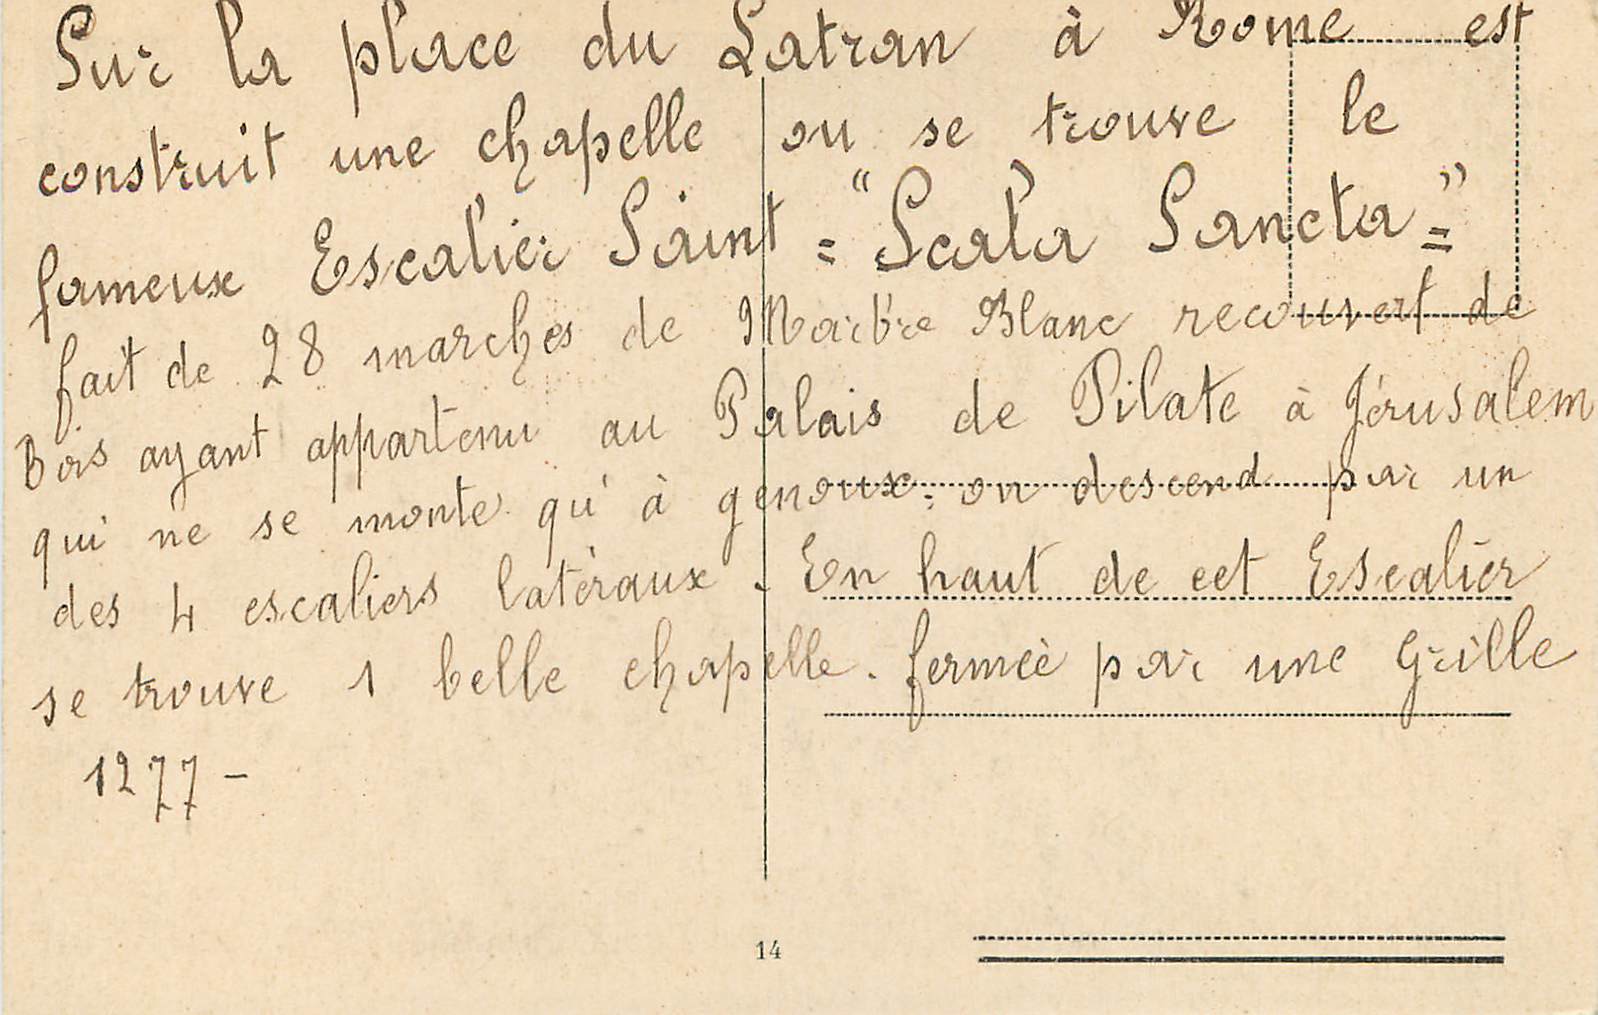 Sur la place du Latran à Rome est
construit une chapelle ou se trouve le
fameux Escalier Saint = "Scala Sancta ="
fait de 28 marches de Marbre Blanc recouvert de
Bois ayant appartenu au Palais de Pilate à Jérusalem
qui ne se monte qu'à genoux. on descend par un
des 4 escaliers latéraux. En haut de cet Escalier
se trouve 1 belle chapelle. fermée par une Grille
1277 -
14